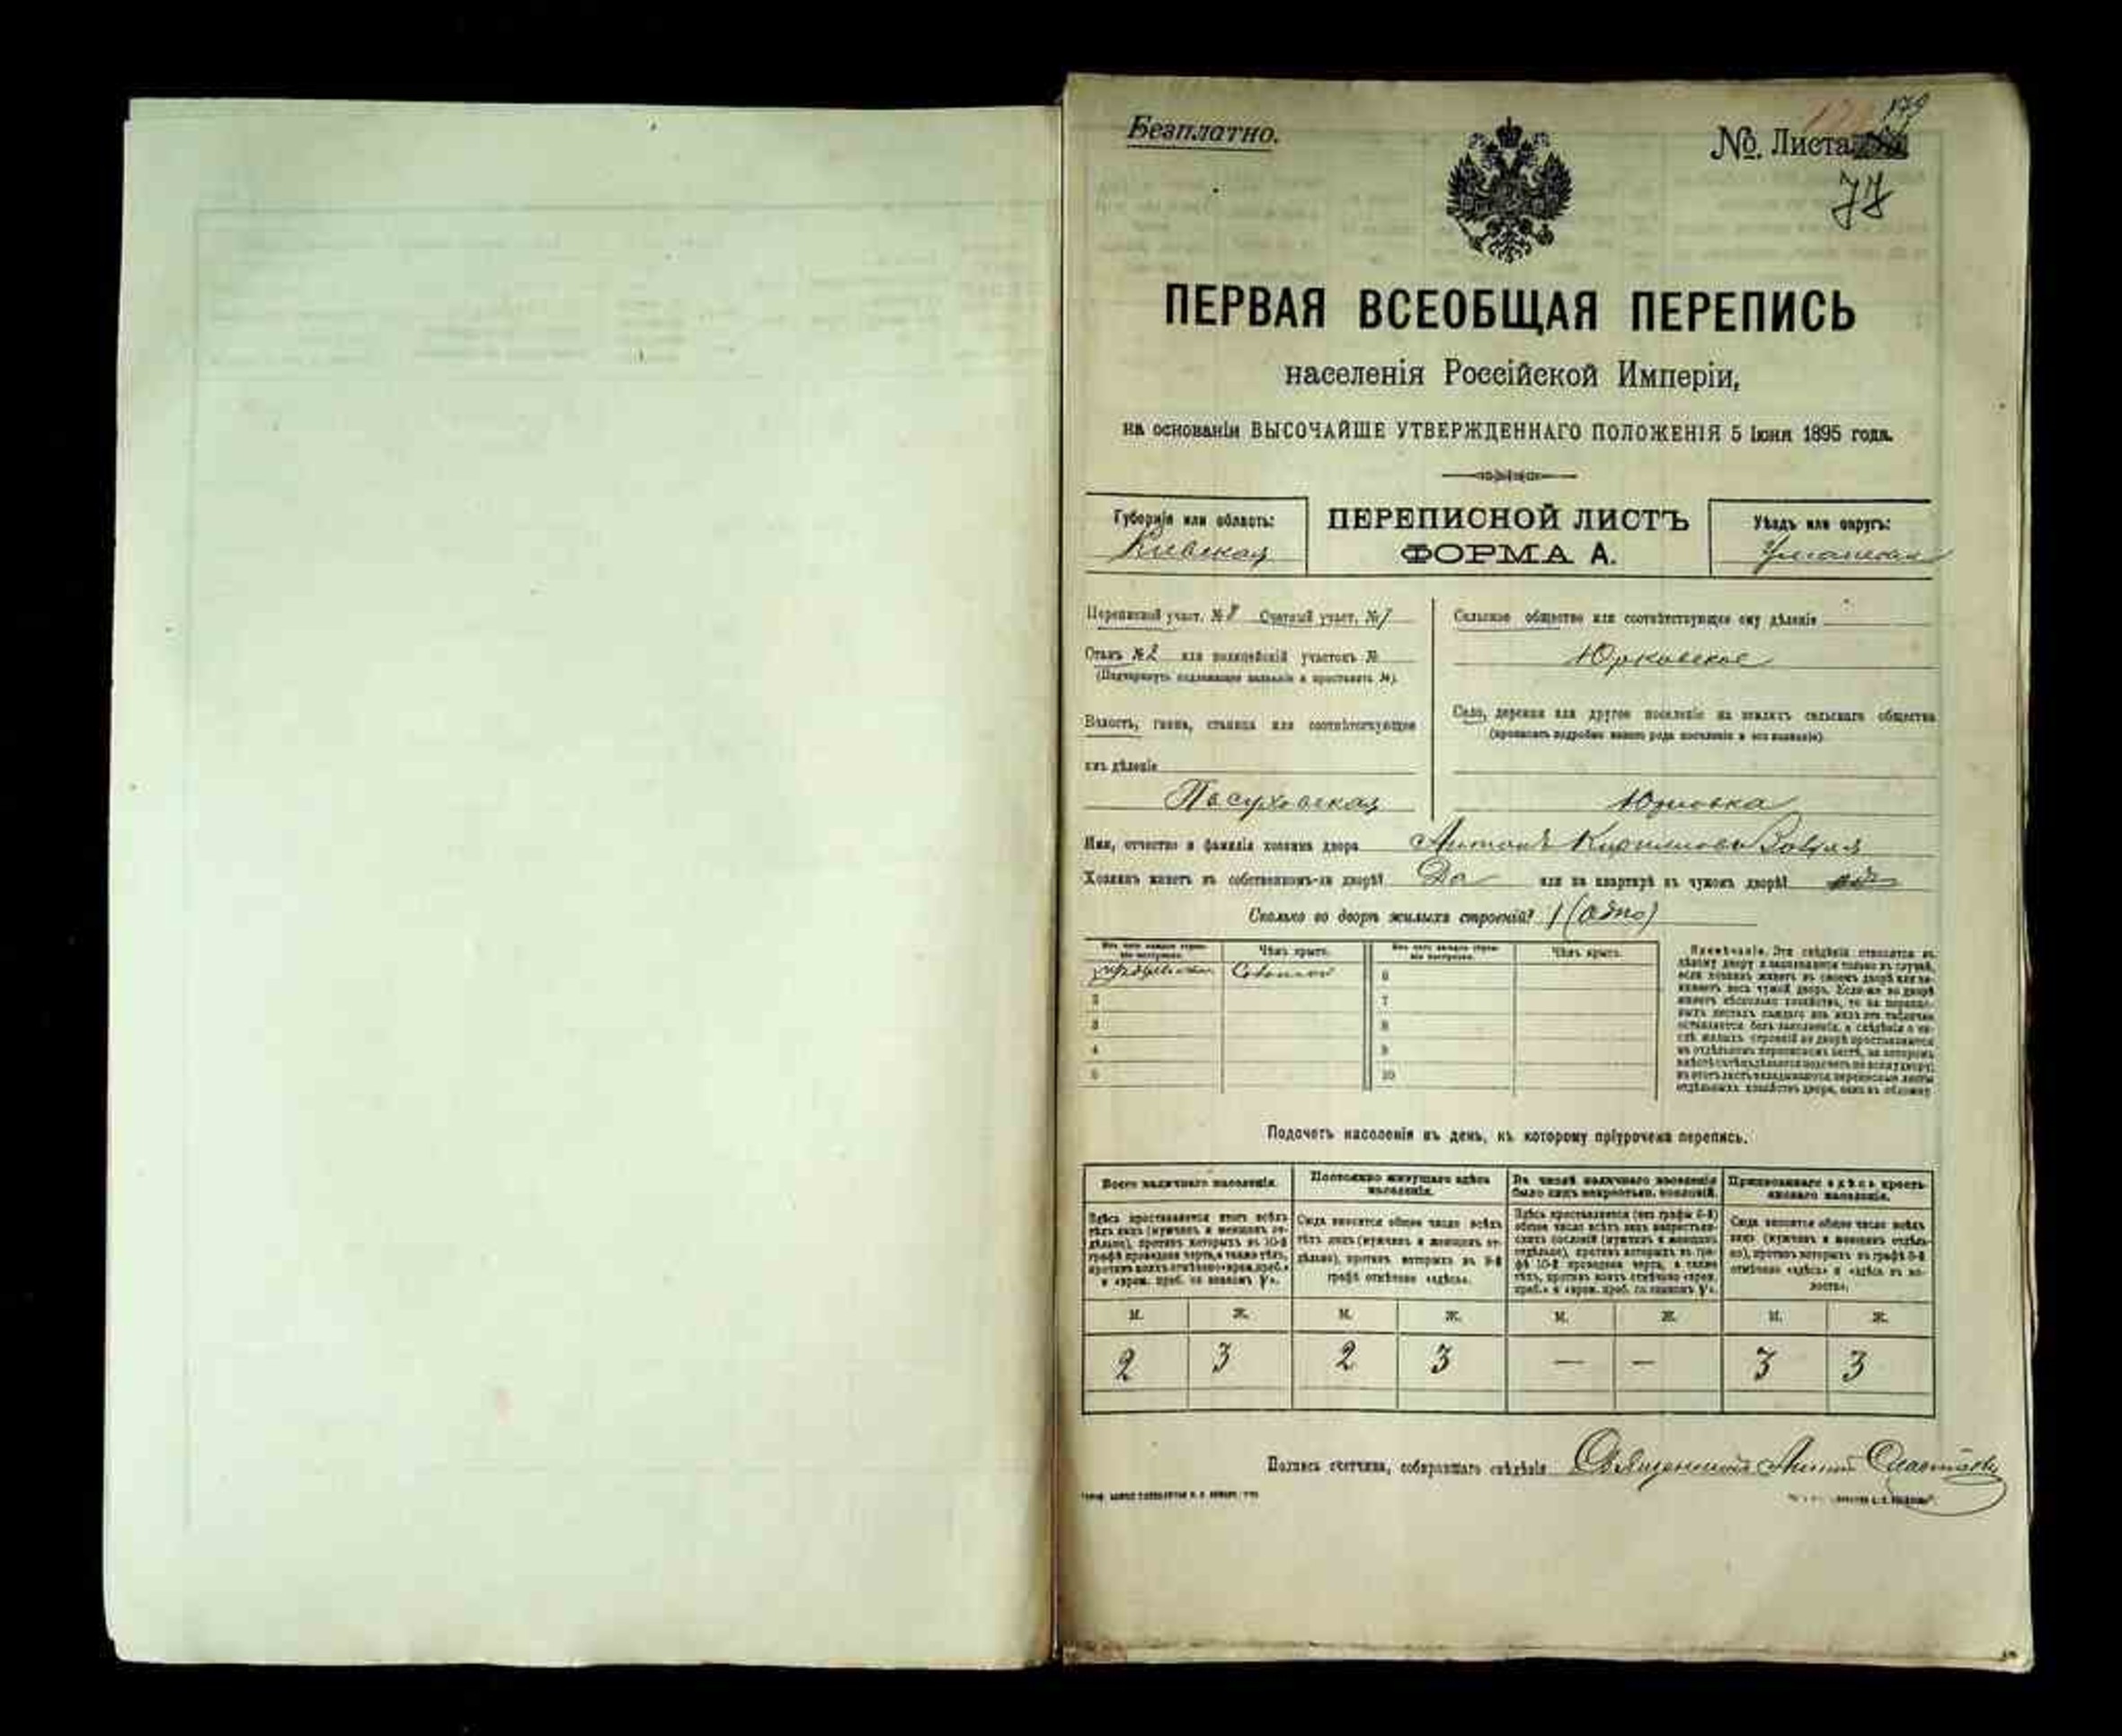 Безплатно.
179
№. Листа
77
ПЕРВАЯ ВСЕОБЩАЯ ПЕРЕПИСЬ
населенія Россійской Имперіи,
на основаніи ВЫСОЧАЙШЕ УТВЕРЖДЕННАГО ПОЛОЖЕНІЯ 5 Іюня 1895 года.
Губернія или область:
Кіевская
ПЕРЕПИСНОЙ ЛИСТЪ
ФОРМА А.
Уѣздъ или округъ:
Уманская
Переписной участ. № 8 Счетный участ. № 7
Станъ № 2 или полицейскій участокъ №
(Подчеркнуть подлежащее названіе и проставить №).
Волость, гмина, станица или соотвѣтствующее
имъ дѣленіе
Сельское общество или соотвѣтствующее ему дѣленіе
Юрковское
Село, деревня или другое поселеніе на земляхъ сельскаго общества
(прописать подробно какого рода поселеніе и его названіе)
Юрковка
Имя, отчество и фамилія хозяина двора Антонъ Кирилловъ
Хозяинъ живетъ въ собственномъ-ли дворѣ? Да или на квартирѣ въ чужомъ дворѣ?
Сколько во дворѣ жилыхъ строеній? 1 (одно)
Изъ чего каждое строеніе построено. Чѣмъ крыто. Изъ чего каждое строеніе построено. Чѣмъ крыто.
Соломою 6
2 7
3 8
4 9
5 10
Примѣчаніе. Эти свѣдѣнія относятся къ
цѣлому двору и заполняются только въ случаѣ,
если хозяинъ живетъ въ своемъ дворѣ или за-
нимаетъ весь чужой дворъ. Если-же во дворѣ
имѣетъ нѣсколько хозяйствъ, то на перепис-
ныхъ листахъ каждаго изъ нихъ эта табличка
оставляется безъ заполненія, а свѣдѣнія о чи-
слѣ жилыхъ строеній во дворѣ проставляются
на отдѣльномъ переписномъ листѣ, на которомъ
вмѣстѣ съ тѣмъ дѣлается подсчетъ по всему двору;
въ этотъ листъ вкладываются переписные листы
отдѣльныхъ хозяйствъ двора, какъ въ обложку
Подсчетъ населенія въ день, къ которому пріурочена перепись.
Всего наличнаго населенія.
Здѣсь проставляется итогъ всѣхъ
тѣхъ лицъ (мужчинъ и женщинъ от-
дѣльно), противъ которыхъ въ 10-й
графѣ проведена черта, а также тѣхъ,
противъ коихъ отмѣчено «врем. преб.»
Постоянно живущаго здѣсь
населенія.
Сюда вносится общее число всѣхъ
тѣхъ лицъ (мужчинъ и женщинъ от-
дѣльно), противъ которыхъ въ 9-й
графѣ отмѣчено «здѣсь».
Въ числѣ наличнаго населенія
было лицъ некрестьян. сословій.
Здѣсь проставляется (изъ графы 6-й)
общее число всѣхъ лицъ некрестьян-
скихъ сословій (мужчинъ и женщинъ
отдѣльно), противъ которыхъ въ гра-
фѣ 10-й проведена черта, а также
тѣхъ, противъ коихъ отмѣчено «врем.
Приписаннаго здѣсь кресть-
янскаго населенія.
Сюда вносится общее число всѣхъ
лицъ (мужчинъ и женщинъ отдѣль-
но), противъ которыхъ въ графѣ 8-й
отмѣчено «здѣсь» и «здѣсь въ во-
лости».
М. Ж. М. Ж. М. Ж. М. Ж.
2 3 2 3 — — 3 3
Подпись счетчика, собиравшаго свѣдѣнія Священникъ